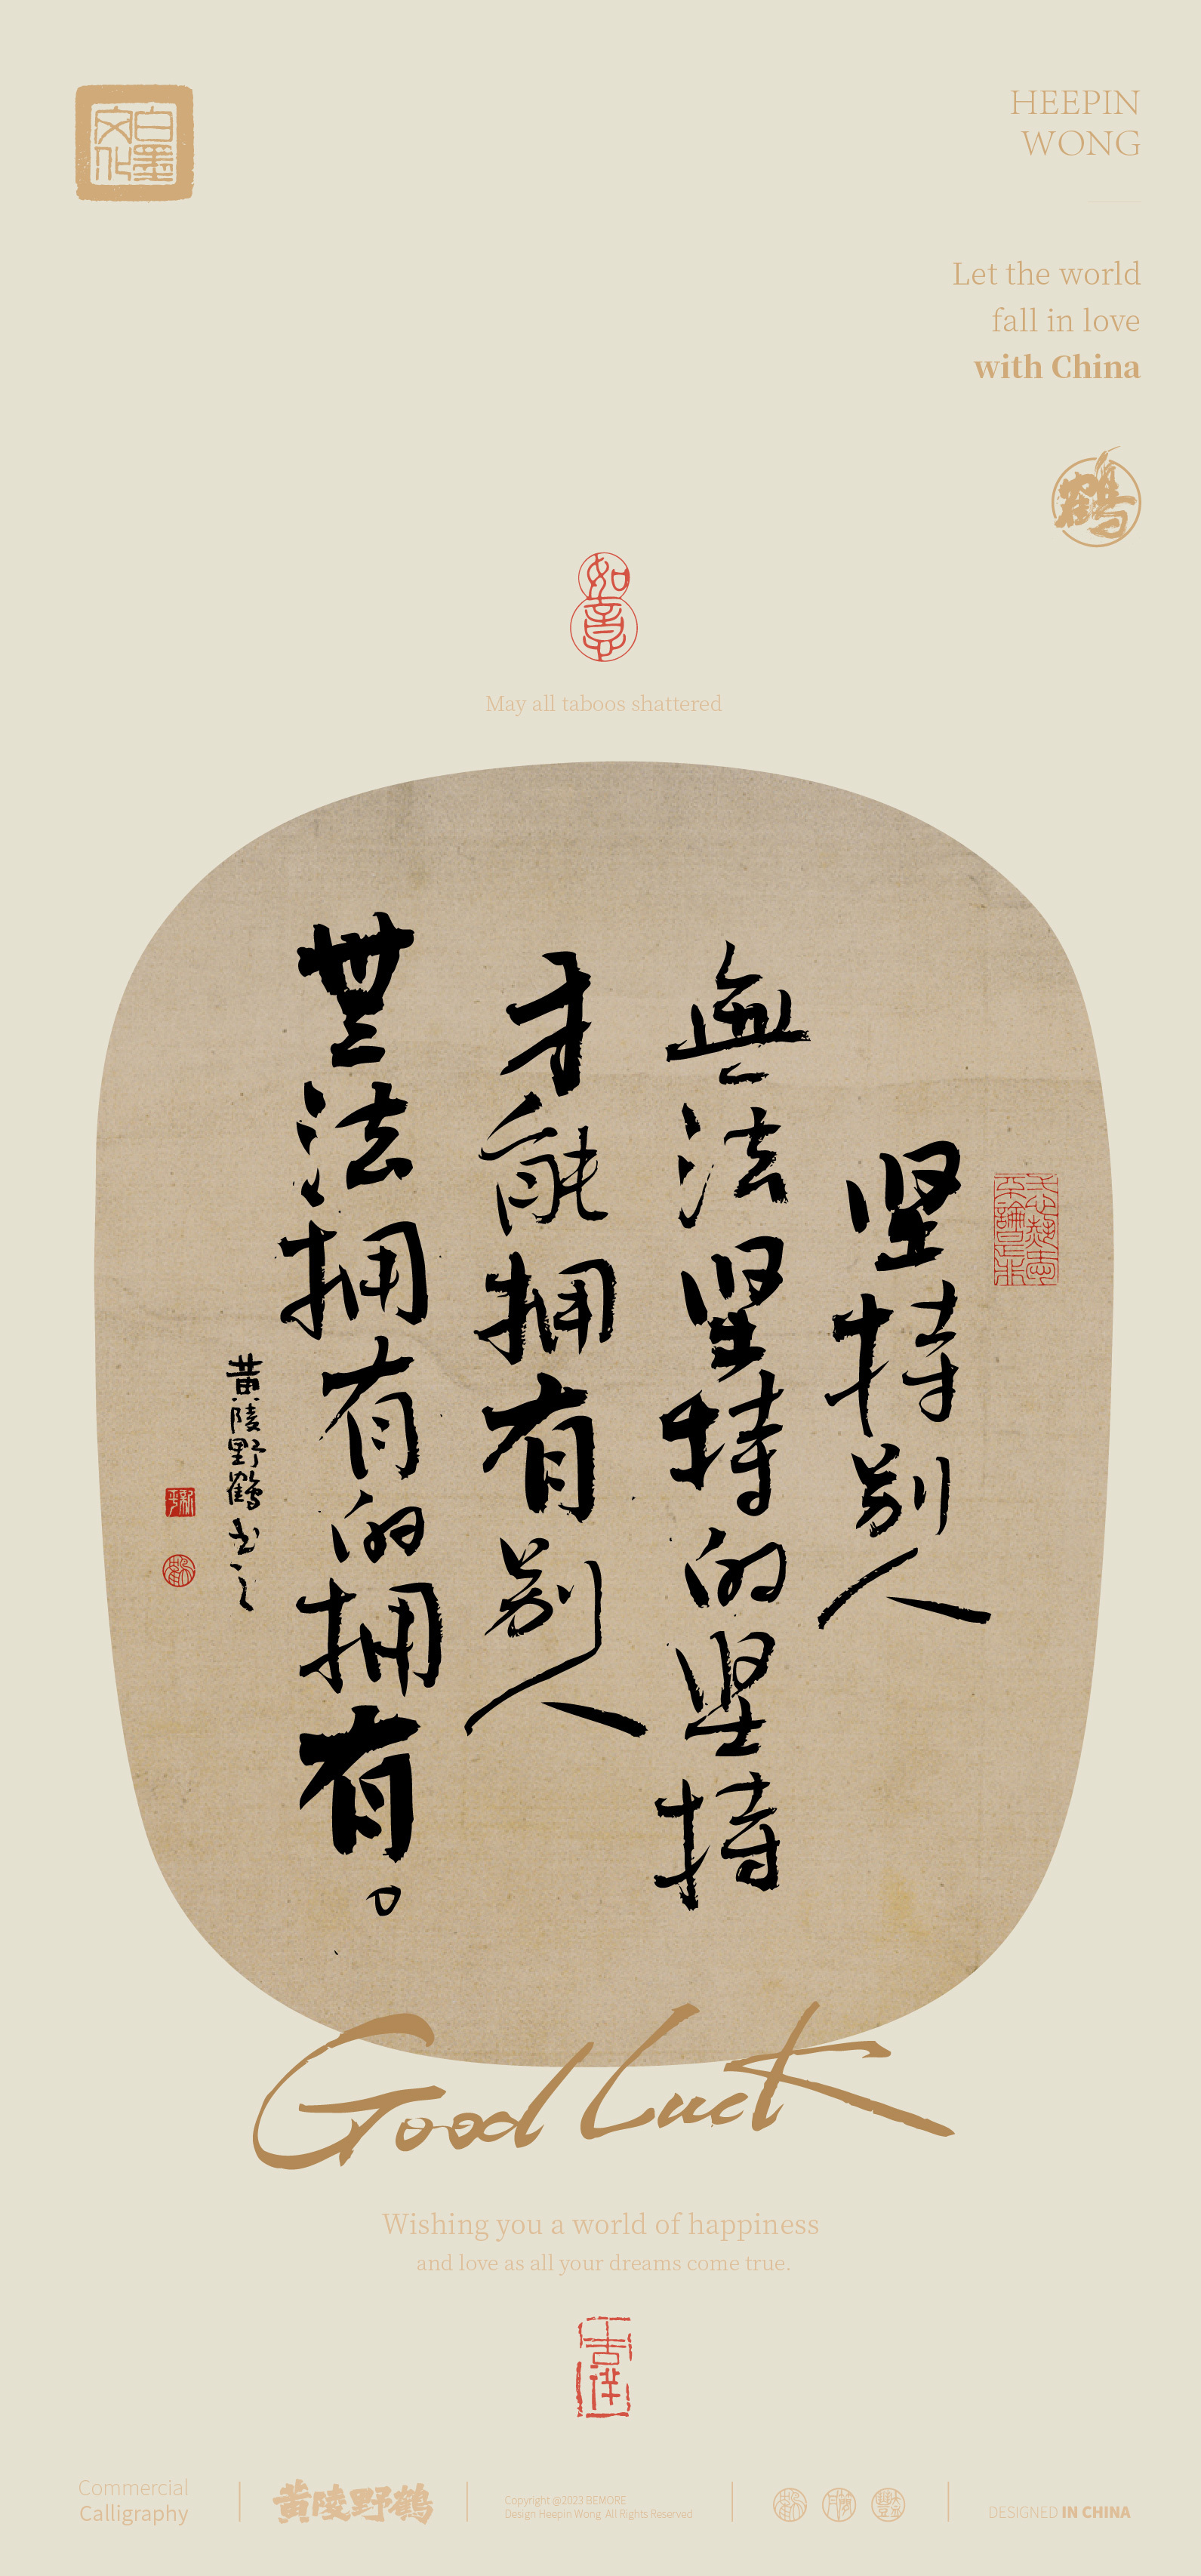 白墨文化
HEEPIN
WONG
Let the world
fall in love
with China
鶴
如意
May all taboos shattered
坚持别人
無法坚持的坚持
才能拥有别人
無法拥有的拥有。
黄陵野鶴书之
Good Luck
Wishing you a world of happiness
and love as all your dreams come true.
吉祥
Commercial
Calligraphy
黄陵野鶴
Copyright @2023 BEMORE
Design Heepin Wong All Rights Reserved
DESIGNED IN CHINA